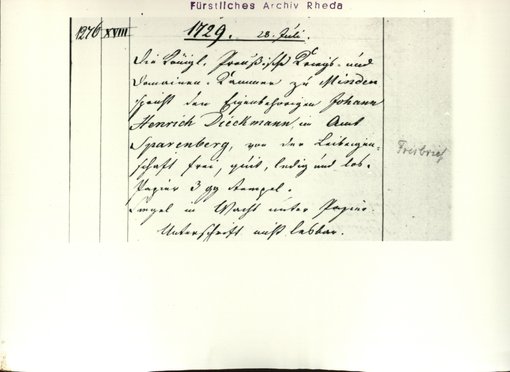 Fürstliches Archiv Rheda
1276 XVIII 1729. 28. Juli.
Die Königl. Preußische Kriegs- und
Domainen-Kammer zu Minden
spricht den Eigenbehörigen Johann
Henrich Dieckmann, im Amt
Sparenberg, von der Leibeigen-
schaft frei, quit, ledig und los.
Papier 3 gg Stempel.
Siegel in Wachs unter Papier.
Unterschrift nicht lesbar.
Freibrief